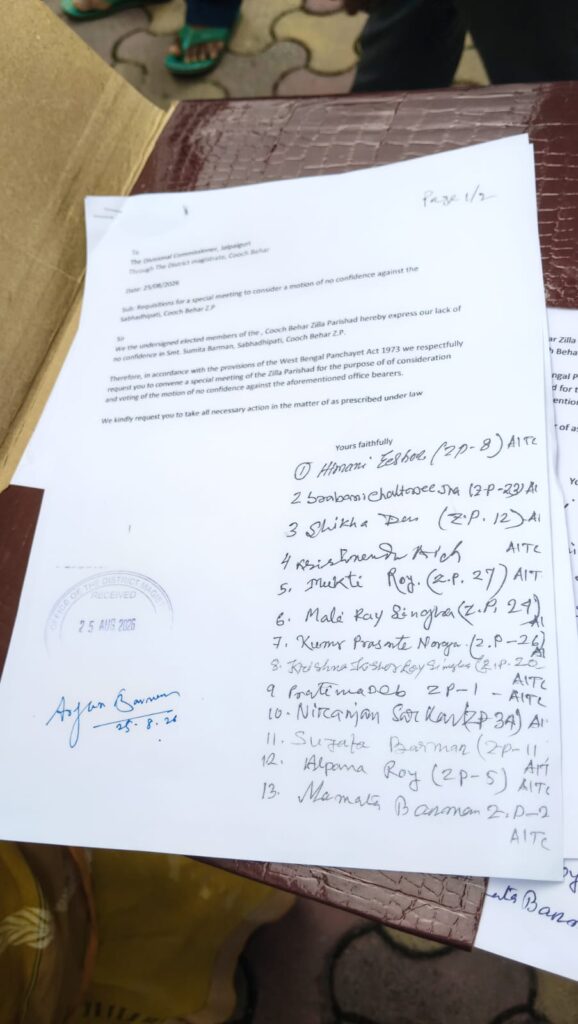 Page 1/2
To
The Divisional Commissioner, Jalpaiguri
Through The District magistrate, Cooch Behar
Date: 25/08/2026
Sub: Requisitions for a special meeting to consider a motion of no confidence against the
Sabhadhipati, Cooch Behar Z.P
Sir
We the undersigned elected members of the , Cooch Behar Zilla Parishad hereby express our lack of
no confidence in Smt. Sumita Barman, Sabhadhipati, Cooch Behar Z.P.
Therefore, in accordance with the provisions of the West Bengal Panchayet Act 1973 we respectfully
request you to convene a special meeting of the Zilla Parishad for the purpose of of consideration
and voting of the motion of no confidence against the aforementioned office bearers.
We kindly request you to take all necessary action in the matter of as prescribed under law
Yours faithfully
1 Himani (ZP-8) AITC
2 (ZP-23) AI
3 Shikha Das (Z.P. 12) AI
4 AITC
5. Mukti Roy. (Z.P. 27) AIT
6. Mala Ray Singha (Z.P. 24)
AI
7. Kumar (Z.P-26)
AI
8. Krishna Kishor Ray Singha (Z.P. 20
AITC
9 Pratima Deb ZP-1 - AITC
10. Niranjan Sarkar (ZP 34) AI
11. Sujata Barman (ZP-11
AIT
12. Alpana Roy (ZP-5) AITC
13. Mamata Barman Z.P-2
AITC
OFFICE OF THE DISTRICT MAGIST
RECEIVED
25 AUG 2026
Arjun Barman
25.8.26
ar Zilla
Beha
Yo
Barm